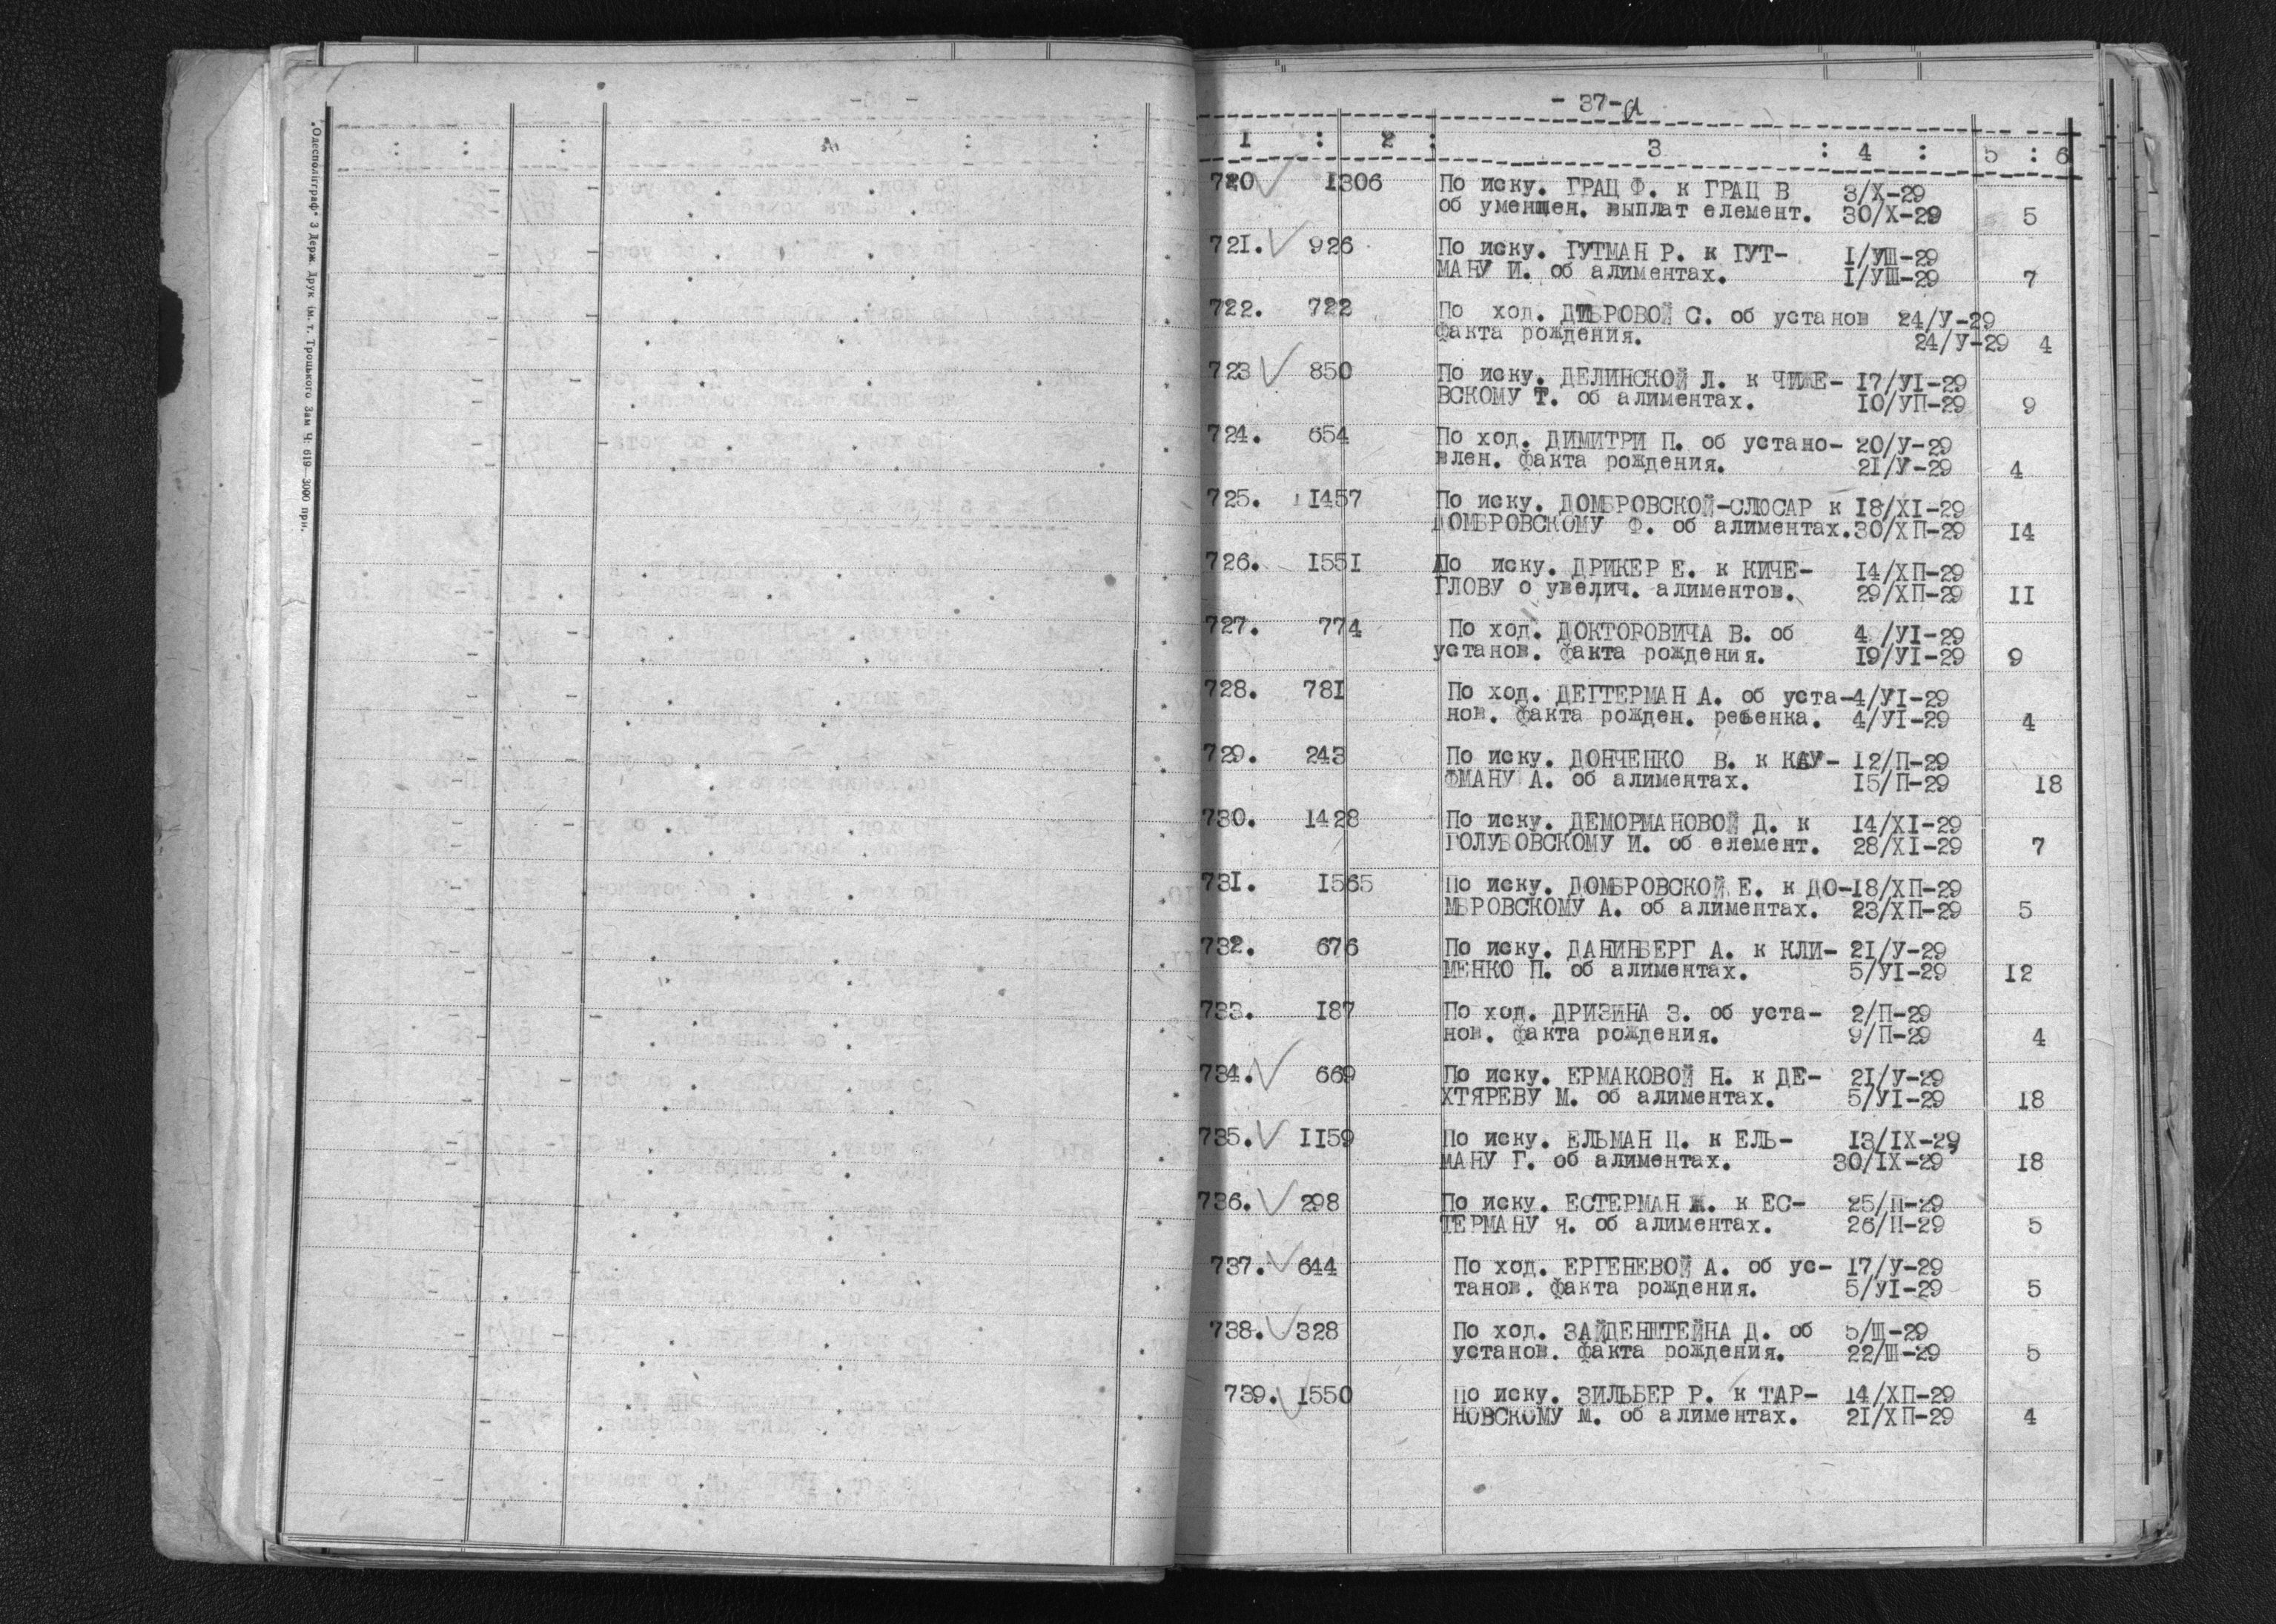 "Одесполіграф" 3 Держ. Друк ім. т. Троцького Зам Ч: 619—3000 прн.
- 37-а
1 : 2 : 3 : 4 : 5 : 6
720 1306 По иску. ГРАЦ Ф. к ГРАЦ В 3/Х-29
об уменшен. выплат елемент. 30/Х-29 5
721. 926 По иску. ГУТМАН Р. к ГУТ- I/УШ-29
МАНУ И. об алиментах. I/УШ-29 7
722. 722 По ход. ДИБРОВОЙ С. об установ 24/У-29
факта рождения. 24/У-29 4
723 850 По иску. ДЕЛИНСКОЙ Л. к ЧИЖЕ- I7/УI-29
ВСКОМУ Т. об алиментах. I0/УП-29 9
724. 654 По ход. ДИМИТРИ П. об устано- 20/У-29
влен. факта рождения. 2I/У-29 4
725. I457 По иску. ДОМБРОВСКОЙ-СЛЮСАР к I8/ХI-29
ДОМБРОВСКОМУ Ф. об алиментах. 30/ХП-29 I4
726. I55I По иску. ДРИКЕР Е. к КИЧЕ- I4/ХП-29
ГЛОВУ о увелич. алиментов. 29/ХП-29 II
727. 774 По ход. ДОКТОРОВИЧА В. об 4 /УI-29
установ. факта рождения. I9/УI-29 9
728. 78I По ход. ДЕГТЕРМАН А. об уста- 4/УI-29
нов. факта рожден. ребенка. 4/УI-29 4
729. 243 По иску. ДОНЧЕНКО В. к КАУ- I2/П-29
ФМАНУ А. об алиментах. I5/П-29 I8
730. I428 По иску. ДЕМОРМАНОВОЙ Д. к I4/ХI-29
ГОЛУБОВСКОМУ И. об елемент. 28/ХI-29 7
73I. I565 По иску. ДОМБРОВСКОЙ Е. к ДО- I8/ХП-29
МБРОВСКОМУ А. об алиментах. 23/ХП-29 5
732. 676 По иску. ДАНИНБЕРГ А. к КЛИ- 2I/У-29
МЕНКО П. об алиментах. 5/УI-29 I2
733. I87 По ход. ДРИЗИНА З. об уста- 2/П-29
нов. факта рождения. 9/П-29 4
734. 669 По иску. ЕРМАКОВОЙ Н. к ДЕ- 2I/У-29
ХТЯРЕВУ М. об алиментах. 5/УI-29 I8
735. II59 По иску. ЕЛЬМАН Ц. к ЕЛЬ- I3/IХ-29
МАНУ Г. об алиментах. 30/IХ-29 I8
736. 298 По иску. ЕСТЕРМАН Ж. к ЕС- 25/П-29
ТЕРМАНУ Я. об алиментах. 26/П-29 5
737. 644 По ход. ЕРГЕНЕВОЙ А. об ус- I7/У-29
танов. факта рождения. 5/УI-29 5
738. 328 По ход. ЗАЙДЕНШТЕЙНА Д. об 5/Ш-29
установ. факта рождения. 22/Ш-29 5
739. I550 По иску. ЗИЛЬБЕР Р. к ТАР- I4/ХП-29
НОВСКОМУ М. об алиментах. 2I/ХП-29 4